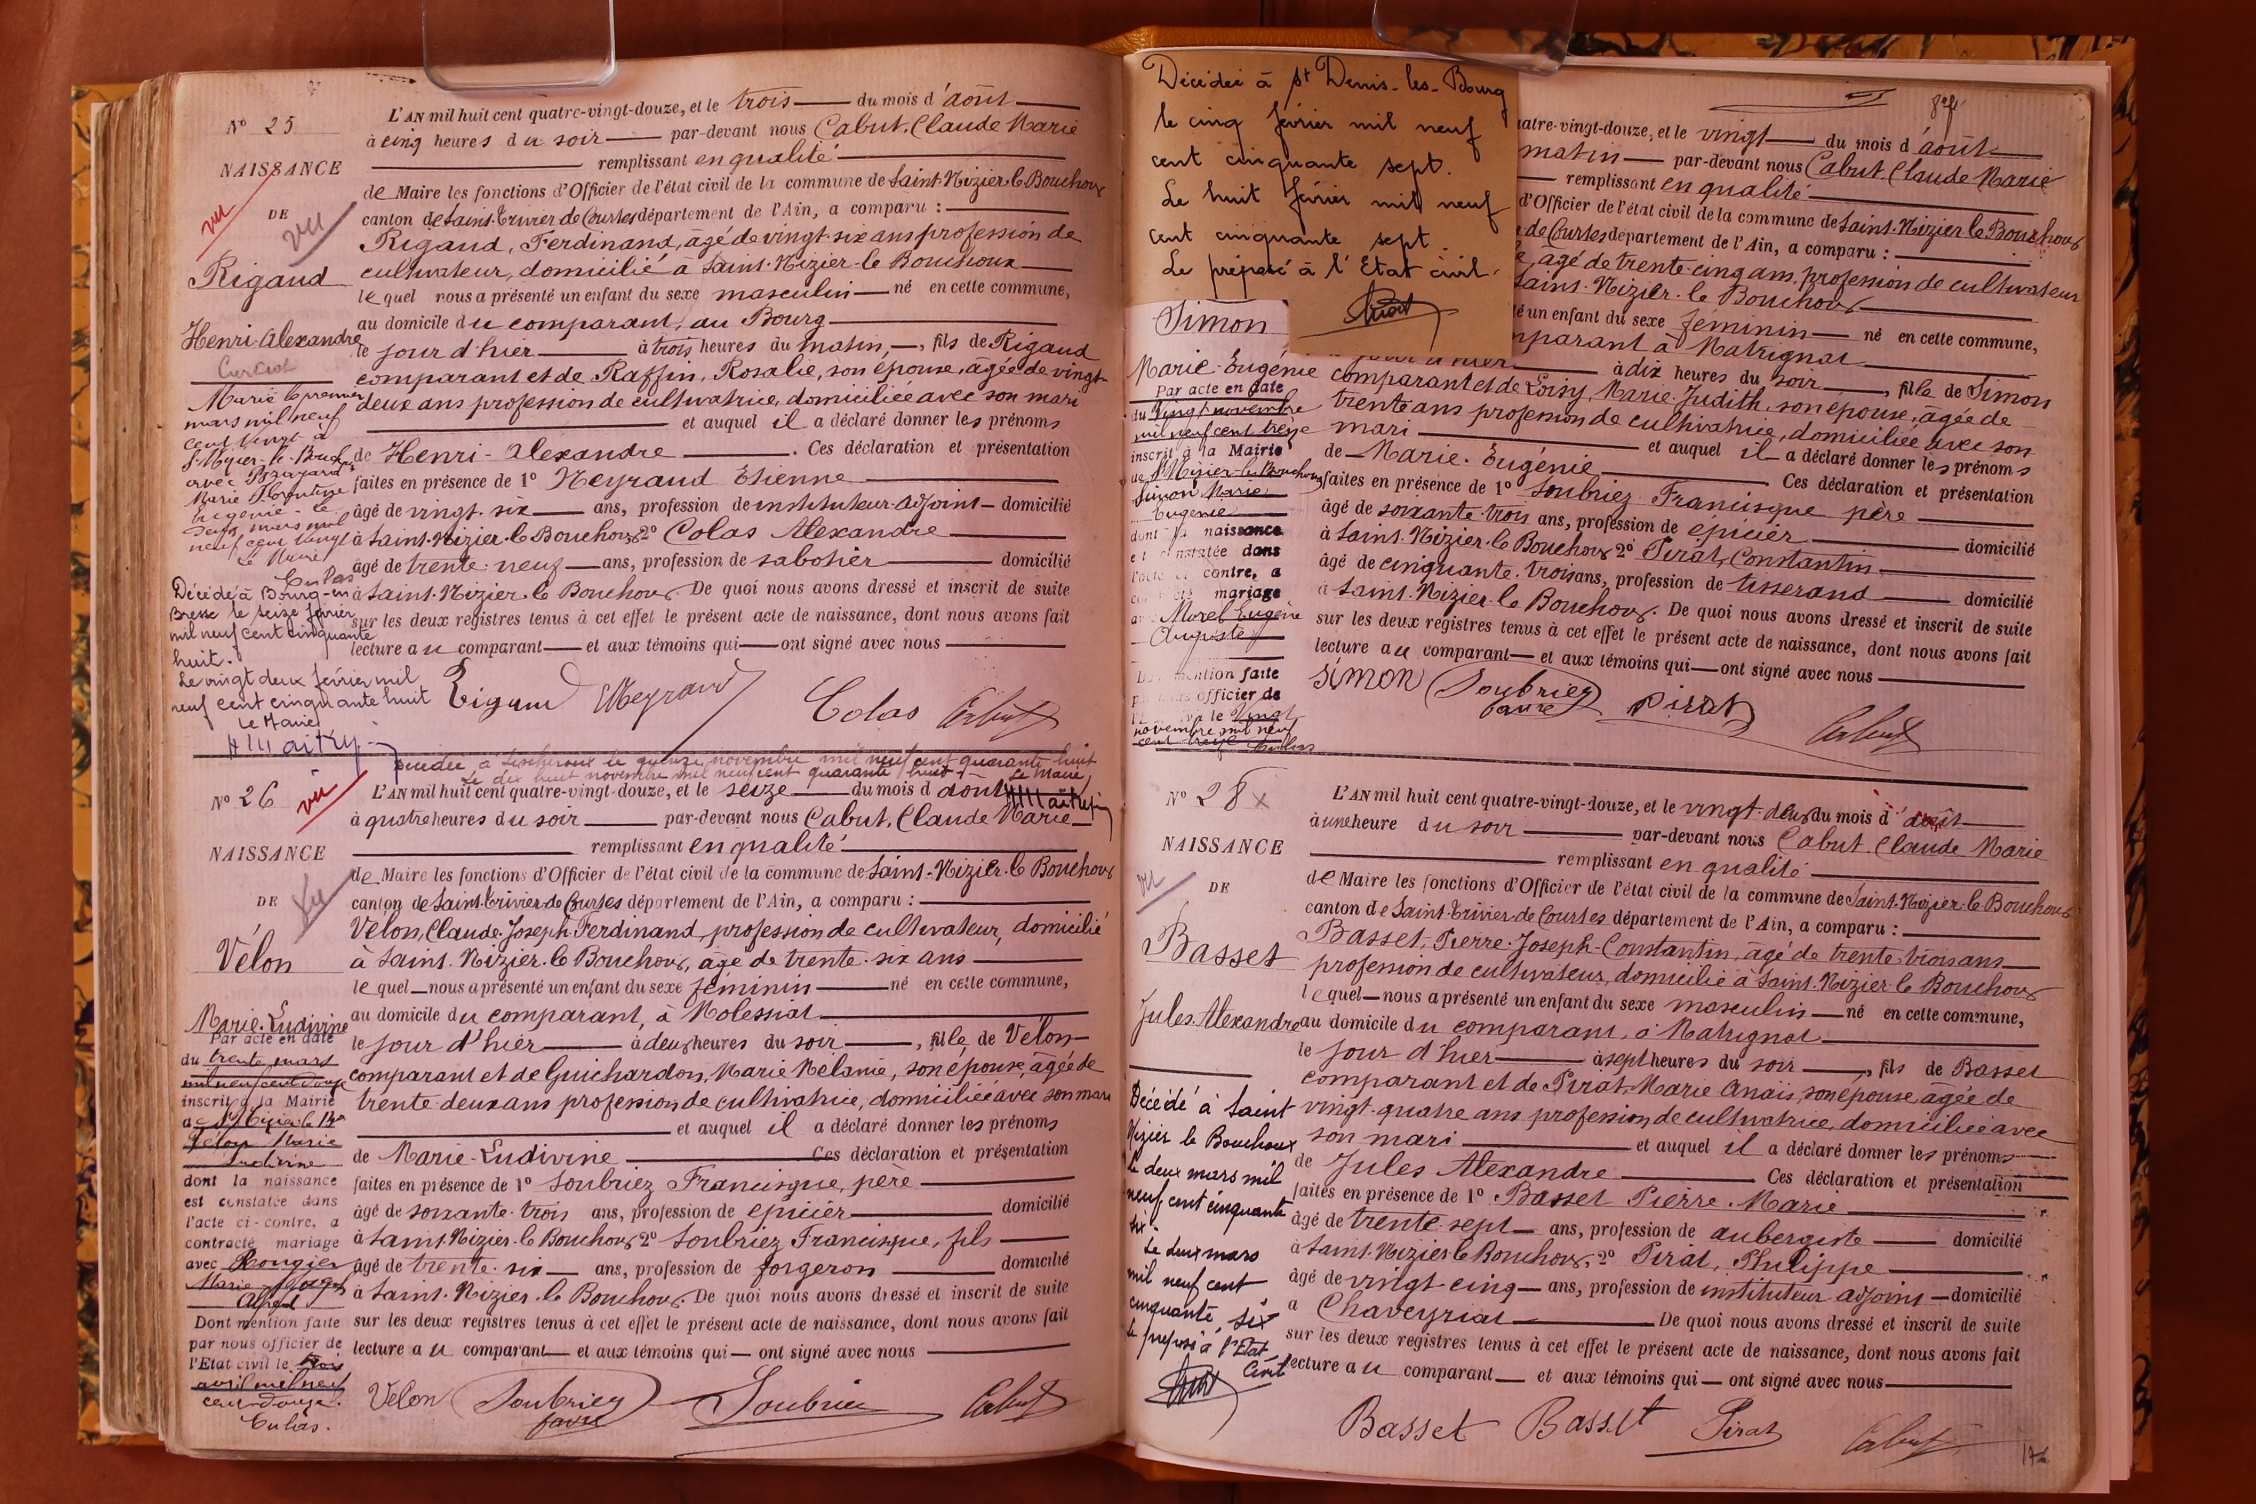 N° 25
NAISSANCE
DE
vu
vu
Rigaud
Henri Alexandre
Marié le premier
mars mil neuf
cent vingt à
St Nizier-le-Bouch
avec
Marie
Eugénie - le
mars mil
neuf cent vingt
Le Maire
Culas
Décédé à Bourg-en
Bresse le seize février
mil neuf cent cinquante
huit.
Le vingt deux février mil
neuf cent cinquante huit
Le Maire
L'AN mil huit cent quatre-vingt-douze, et le trois du mois d'août
à cinq heures du soir par-devant nous Cabut, Claude Marie
remplissant en qualité
de Maire les fonctions d'Officier de l'état civil de la commune de Saint-Nizier-le-Bouchoux
canton de Saint-Trivier-de-Courtes département de l'Ain, a comparu :
Rigaud, Ferdinand, âgé de vingt-six ans profession de
cultivateur, domicilié à Saint-Nizier-le-Bouchoux
lequel nous a présenté un enfant du sexe masculin né en cette commune,
au domicile du comparant, au Bourg
le jour d'hier à trois heures du matin, fils de Rigaud
comparant et de Raffin, Rosalie, son épouse, âgée de vingt-
deux ans profession de cultivatrice, domiciliée avec son mari
et auquel il a déclaré donner les prénoms
de Henri-Alexandre. Ces déclaration et présentation
faites en présence de 1° Neyraud Etienne
âgé de vingt-six ans, profession de instituteur-adjoint domicilié
à Saint-Nizier-le-Bouchoux 2° Colas Alexandre
âgé de trente-neuf ans, profession de sabotier domicilié
à Saint-Nizier-le-Bouchoux. De quoi nous avons dressé et inscrit de suite
sur les deux registres tenus à cet effet le présent acte de naissance, dont nous avons fait
lecture au comparant et aux témoins qui ont signé avec nous
Rigaud Neyraud Colas Cabut
Décédée à Lescheroux le quinze novembre mil neuf cent quarante huit
Le dix huit novembre mil neuf cent quarante huit - Le Maire
N° 26
vu
NAISSANCE
DE
vu
Vélon
Marie-Ludivine
Par acte en date
du trente mars
mil neuf cent douze
inscrit à la Mairie
de St Nizier le Bx
Vélon Marie
Ludivine
dont la naissance
est constatée dans
l'acte ci-contre, a
contracté mariage
avec Rougier
Marie Joseph
Alfred
Dont mention faite
par nous officier de
l'Etat civil le trois
avril mil neuf
cent douze.
Culas.
L'AN mil huit cent quatre-vingt-douze, et le seize du mois d'août
à quatre heures du soir par-devant nous Cabut, Claude Marie
remplissant en qualité
de Maire les fonctions d'Officier de l'état civil de la commune de Saint-Nizier-le-Bouchoux
canton de Saint-Trivier-de-Courtes département de l'Ain, a comparu :
Vélon, Claude-Joseph-Ferdinand, profession de cultivateur, domicilié
à Saint-Nizier-le-Bouchoux, âgé de trente-six ans
lequel nous a présenté un enfant du sexe féminin né en cette commune,
au domicile du comparant, à Molesiat
le jour d'hier à deux heures du soir, fille de Vélon
comparant et de Guichardon, Marie Mélanie, son épouse, âgée de
trente deux ans profession de cultivatrice, domiciliée avec son mari
et auquel il a déclaré donner les prénoms
de Marie-Ludivine Ces déclaration et présentation
faites en présence de 1° Soubriez Francisque, père
âgé de soixante-trois ans, profession de épicier domicilié
à Saint-Nizier-le-Bouchoux 2° Soubriez Francisque, fils
âgé de trente-six ans, profession de forgeron domicilié
à Saint-Nizier-le-Bouchoux. De quoi nous avons dressé et inscrit de suite
sur les deux registres tenus à cet effet le présent acte de naissance, dont nous avons fait
lecture au comparant et aux témoins qui ont signé avec nous
Velon Soubriez Soubriez Cabut
favre
Décédée à St Denis-les-Bourg
le cinq février mil neuf
cent cinquante sept.
Le huit février mil neuf
cent cinquante sept.
Le préposé à l'Etat civil.
Simon
Marie-Eugénie
Par acte en date
du vingt novembre
mil neuf cent treize
inscrit à la Mairie
de St Nizier-le-Bouchoux
Simon Marie
Eugénie
dont la naissance
est constatée dans
l'acte ci contre, a
contracté mariage
avec Morel Eugène
Auguste
Dont mention faite
par nous officier de
l'Etat civil le vingt
novembre mil neuf
cent treize Culas
quatre-vingt-douze, et le vingt du mois d'août
matin par-devant nous Cabut, Claude Marie
remplissant en qualité
d'Officier de l'état civil de la commune de Saint-Nizier-le-Bouchoux
de Courtes département de l'Ain, a comparu :
âgé de trente-cinq ans, profession de cultivateur
Saint-Nizier-le-Bouchoux
té un enfant du sexe féminin né en cette commune,
mparant à Matrignat
le jour d'hier à dix heures du soir, fille de Simon
comparant et de Loisy, Marie-Judith, son épouse, âgée de
trente ans profession de cultivatrice, domiciliée avec son
mari et auquel il a déclaré donner les prénoms
de Marie-Eugénie Ces déclaration et présentation
faites en présence de 1° Soubriez Francisque père
âgé de soixante-trois ans, profession de épicier domicilié
à Saint-Nizier-le-Bouchoux 2° Pirat, Constantin
âgé de cinquante-trois ans, profession de tisserand domicilié
à Saint-Nizier-le-Bouchoux. De quoi nous avons dressé et inscrit de suite
sur les deux registres tenus à cet effet le présent acte de naissance, dont nous avons fait
lecture au comparant et aux témoins qui ont signé avec nous
Simon Soubriez Pirat Cabut
favre
N° 28
NAISSANCE
vu
DE
Basset
Jules Alexandre
Décédé à Saint
Nizier le Bouchoux
le deux mars mil
neuf cent cinquante
six.
Le deux mars
mil neuf cent
cinquante six
le préposé à l'Etat
Civil
L'AN mil huit cent quatre-vingt-douze, et le vingt-deux du mois d'août
à une heure du soir par-devant nous Cabut, Claude Marie
remplissant en qualité
de Maire les fonctions d'Officier de l'état civil de la commune de Saint-Nizier-le-Bouchoux
canton de Saint-Trivier-de-Courtes département de l'Ain, a comparu :
Basset, Pierre-Joseph-Constantin, âgé de trente-trois ans
profession de cultivateur, domicilié à Saint-Nizier-le-Bouchoux
lequel nous a présenté un enfant du sexe masculin né en cette commune,
au domicile du comparant, à Matrignat
le jour d'hier à sept heures du soir, fils de Basset
comparant et de Pirat, Marie Anaïs, son épouse, âgée de
vingt-quatre ans profession de cultivatrice, domiciliée avec
son mari et auquel il a déclaré donner les prénoms
de Jules Alexandre Ces déclaration et présentation
faites en présence de 1° Basset Pierre-Marie
âgé de trente-sept ans, profession de aubergiste domicilié
à Saint-Nizier-le-Bouchoux, 2° Pirat, Philippe
âgé de vingt-cinq ans, profession de instituteur adjoint domicilié
à Chaveyriat De quoi nous avons dressé et inscrit de suite
sur les deux registres tenus à cet effet le présent acte de naissance, dont nous avons fait
lecture au comparant et aux témoins qui ont signé avec nous
Basset Basset Pirat Cabut